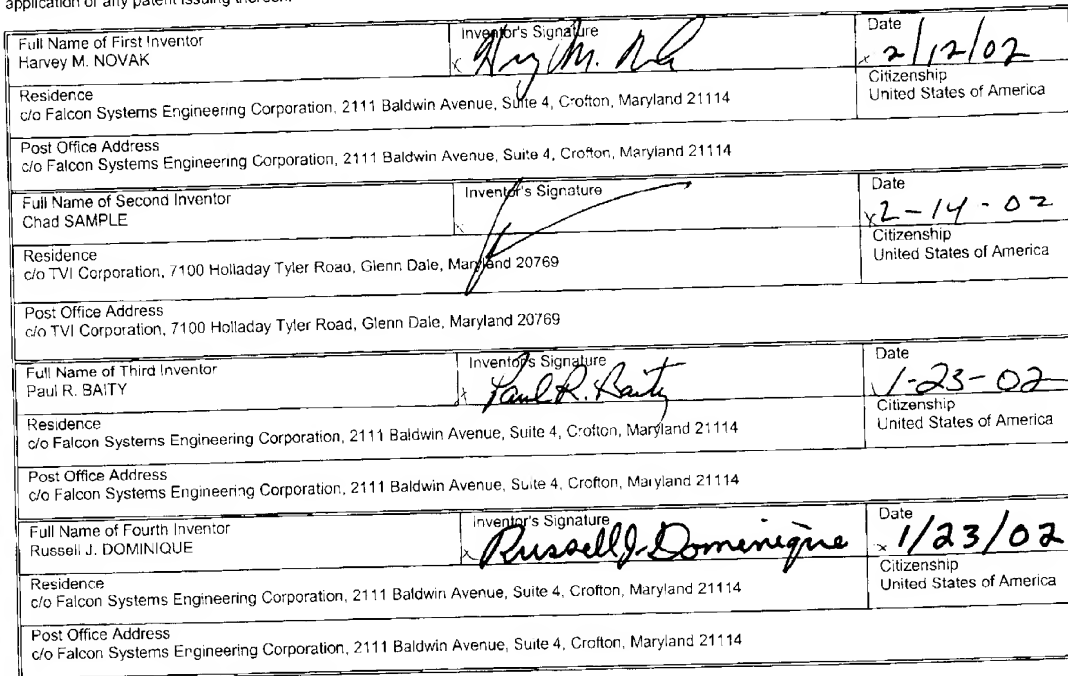 application or any patent issuing thereon.
Full Name of First Inventor
Harvey M. NOVAK
Inventor's Signature
x
Date
x 2/12/02
Residence
c/o Falcon Systems Engineering Corporation, 2111 Baldwin Avenue, Suite 4, Crofton, Maryland 21114
Citizenship
United States of America
Post Office Address
c/o Falcon Systems Engineering Corporation, 2111 Baldwin Avenue, Suite 4, Crofton, Maryland 21114
Full Name of Second Inventor
Chad SAMPLE
Inventor's Signature
x
Date
x 2-14-02
Residence
c/o TVI Corporation, 7100 Holladay Tyler Road, Glenn Dale, Maryland 20769
Citizenship
United States of America
Post Office Address
c/o TVI Corporation, 7100 Holladay Tyler Road, Glenn Dale, Maryland 20769
Full Name of Third Inventor
Paul R. BAITY
Inventor's Signature
x Paul R. Baity
Date
1-23-02
Residence
c/o Falcon Systems Engineering Corporation, 2111 Baldwin Avenue, Suite 4, Crofton, Maryland 21114
Citizenship
United States of America
Post Office Address
c/o Falcon Systems Engineering Corporation, 2111 Baldwin Avenue, Suite 4, Crofton, Maryland 21114
Full Name of Fourth Inventor
Russell J. DOMINIQUE
Inventor's Signature
x Russell J. Dominique
Date
x 1/23/02
Residence
c/o Falcon Systems Engineering Corporation, 2111 Baldwin Avenue, Suite 4, Crofton, Maryland 21114
Citizenship
United States of America
Post Office Address
c/o Falcon Systems Engineering Corporation, 2111 Baldwin Avenue, Suite 4, Crofton, Maryland 21114